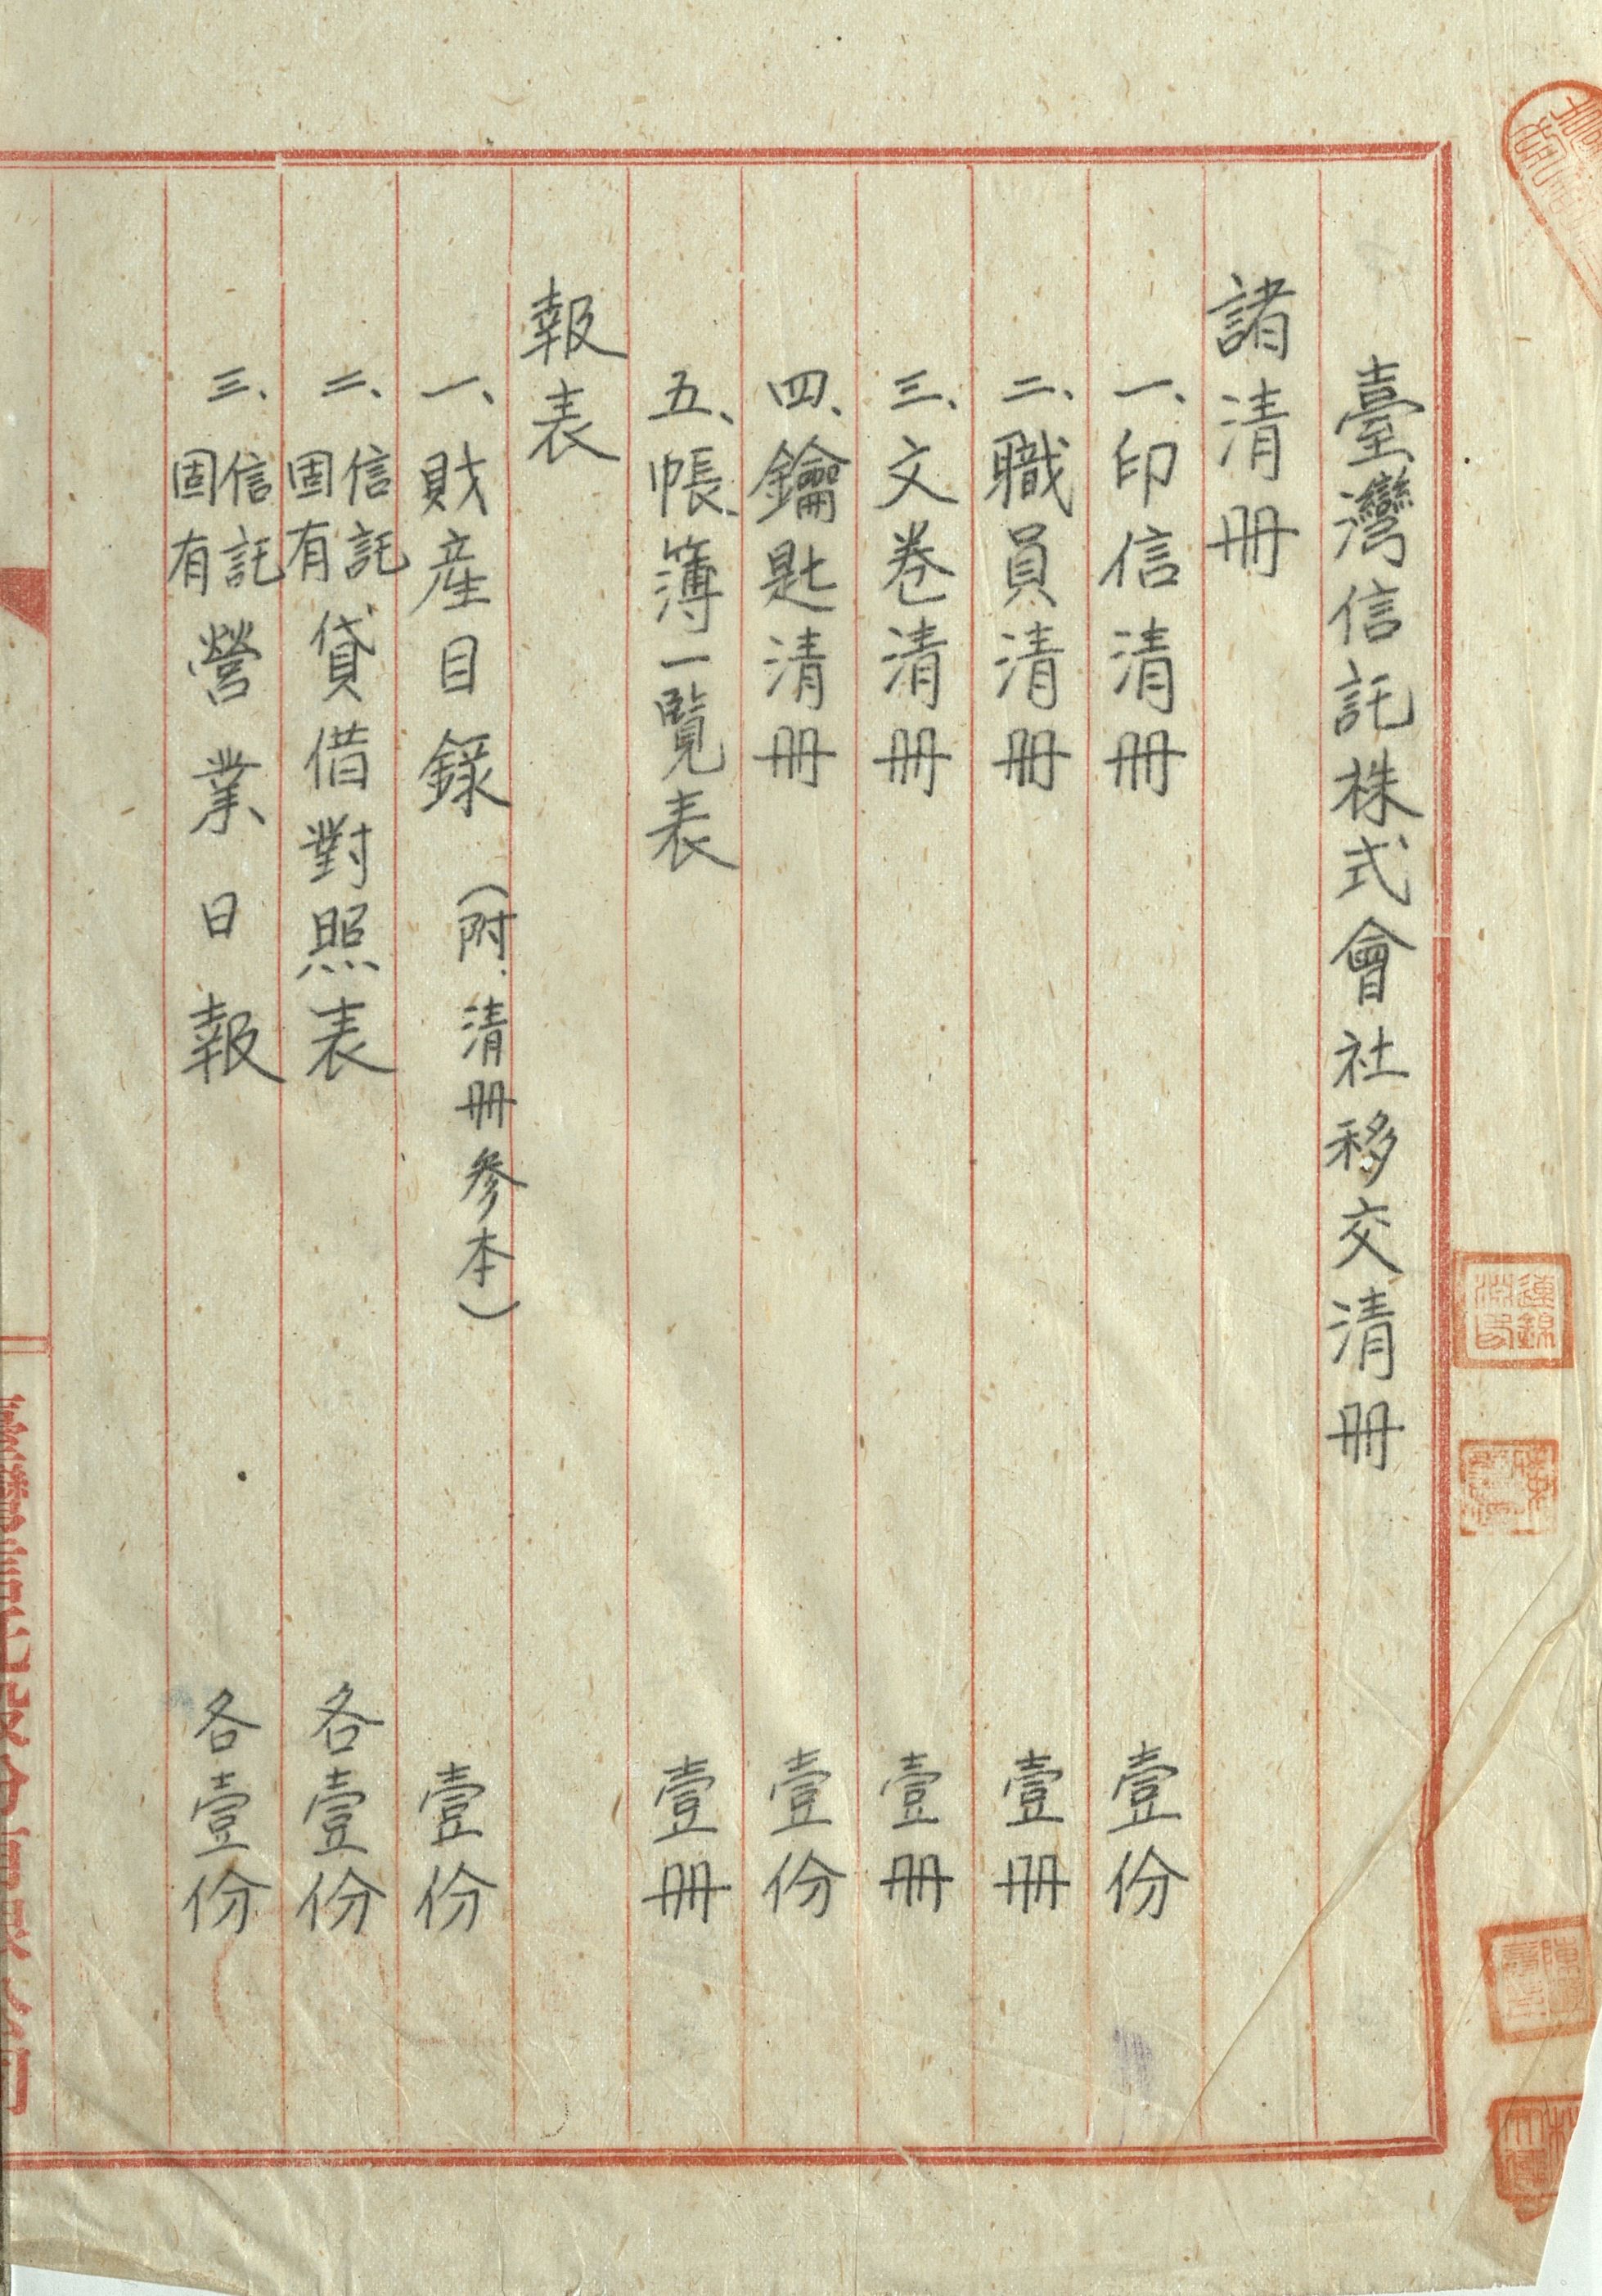 臺灣信託株式會社移交清冊
諸清冊
一、印信清冊 壹份
二、職員清冊 壹冊
三、文卷清冊 壹冊
四、鑰匙清冊 壹份
五、帳簿一覽表 壹冊
報表
一、財産目錄（附清冊參本） 壹份
二、信託固有貸借對照表 各壹份
三、信託固有營業日報 各壹份